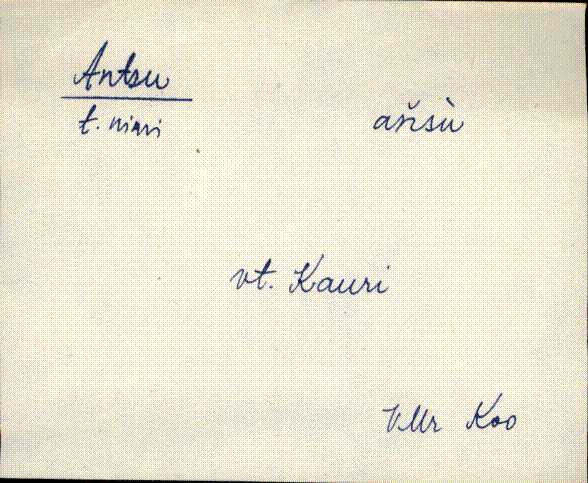 Antsu
t. nimi
ańsù
vt. Kauri
VMr Koo